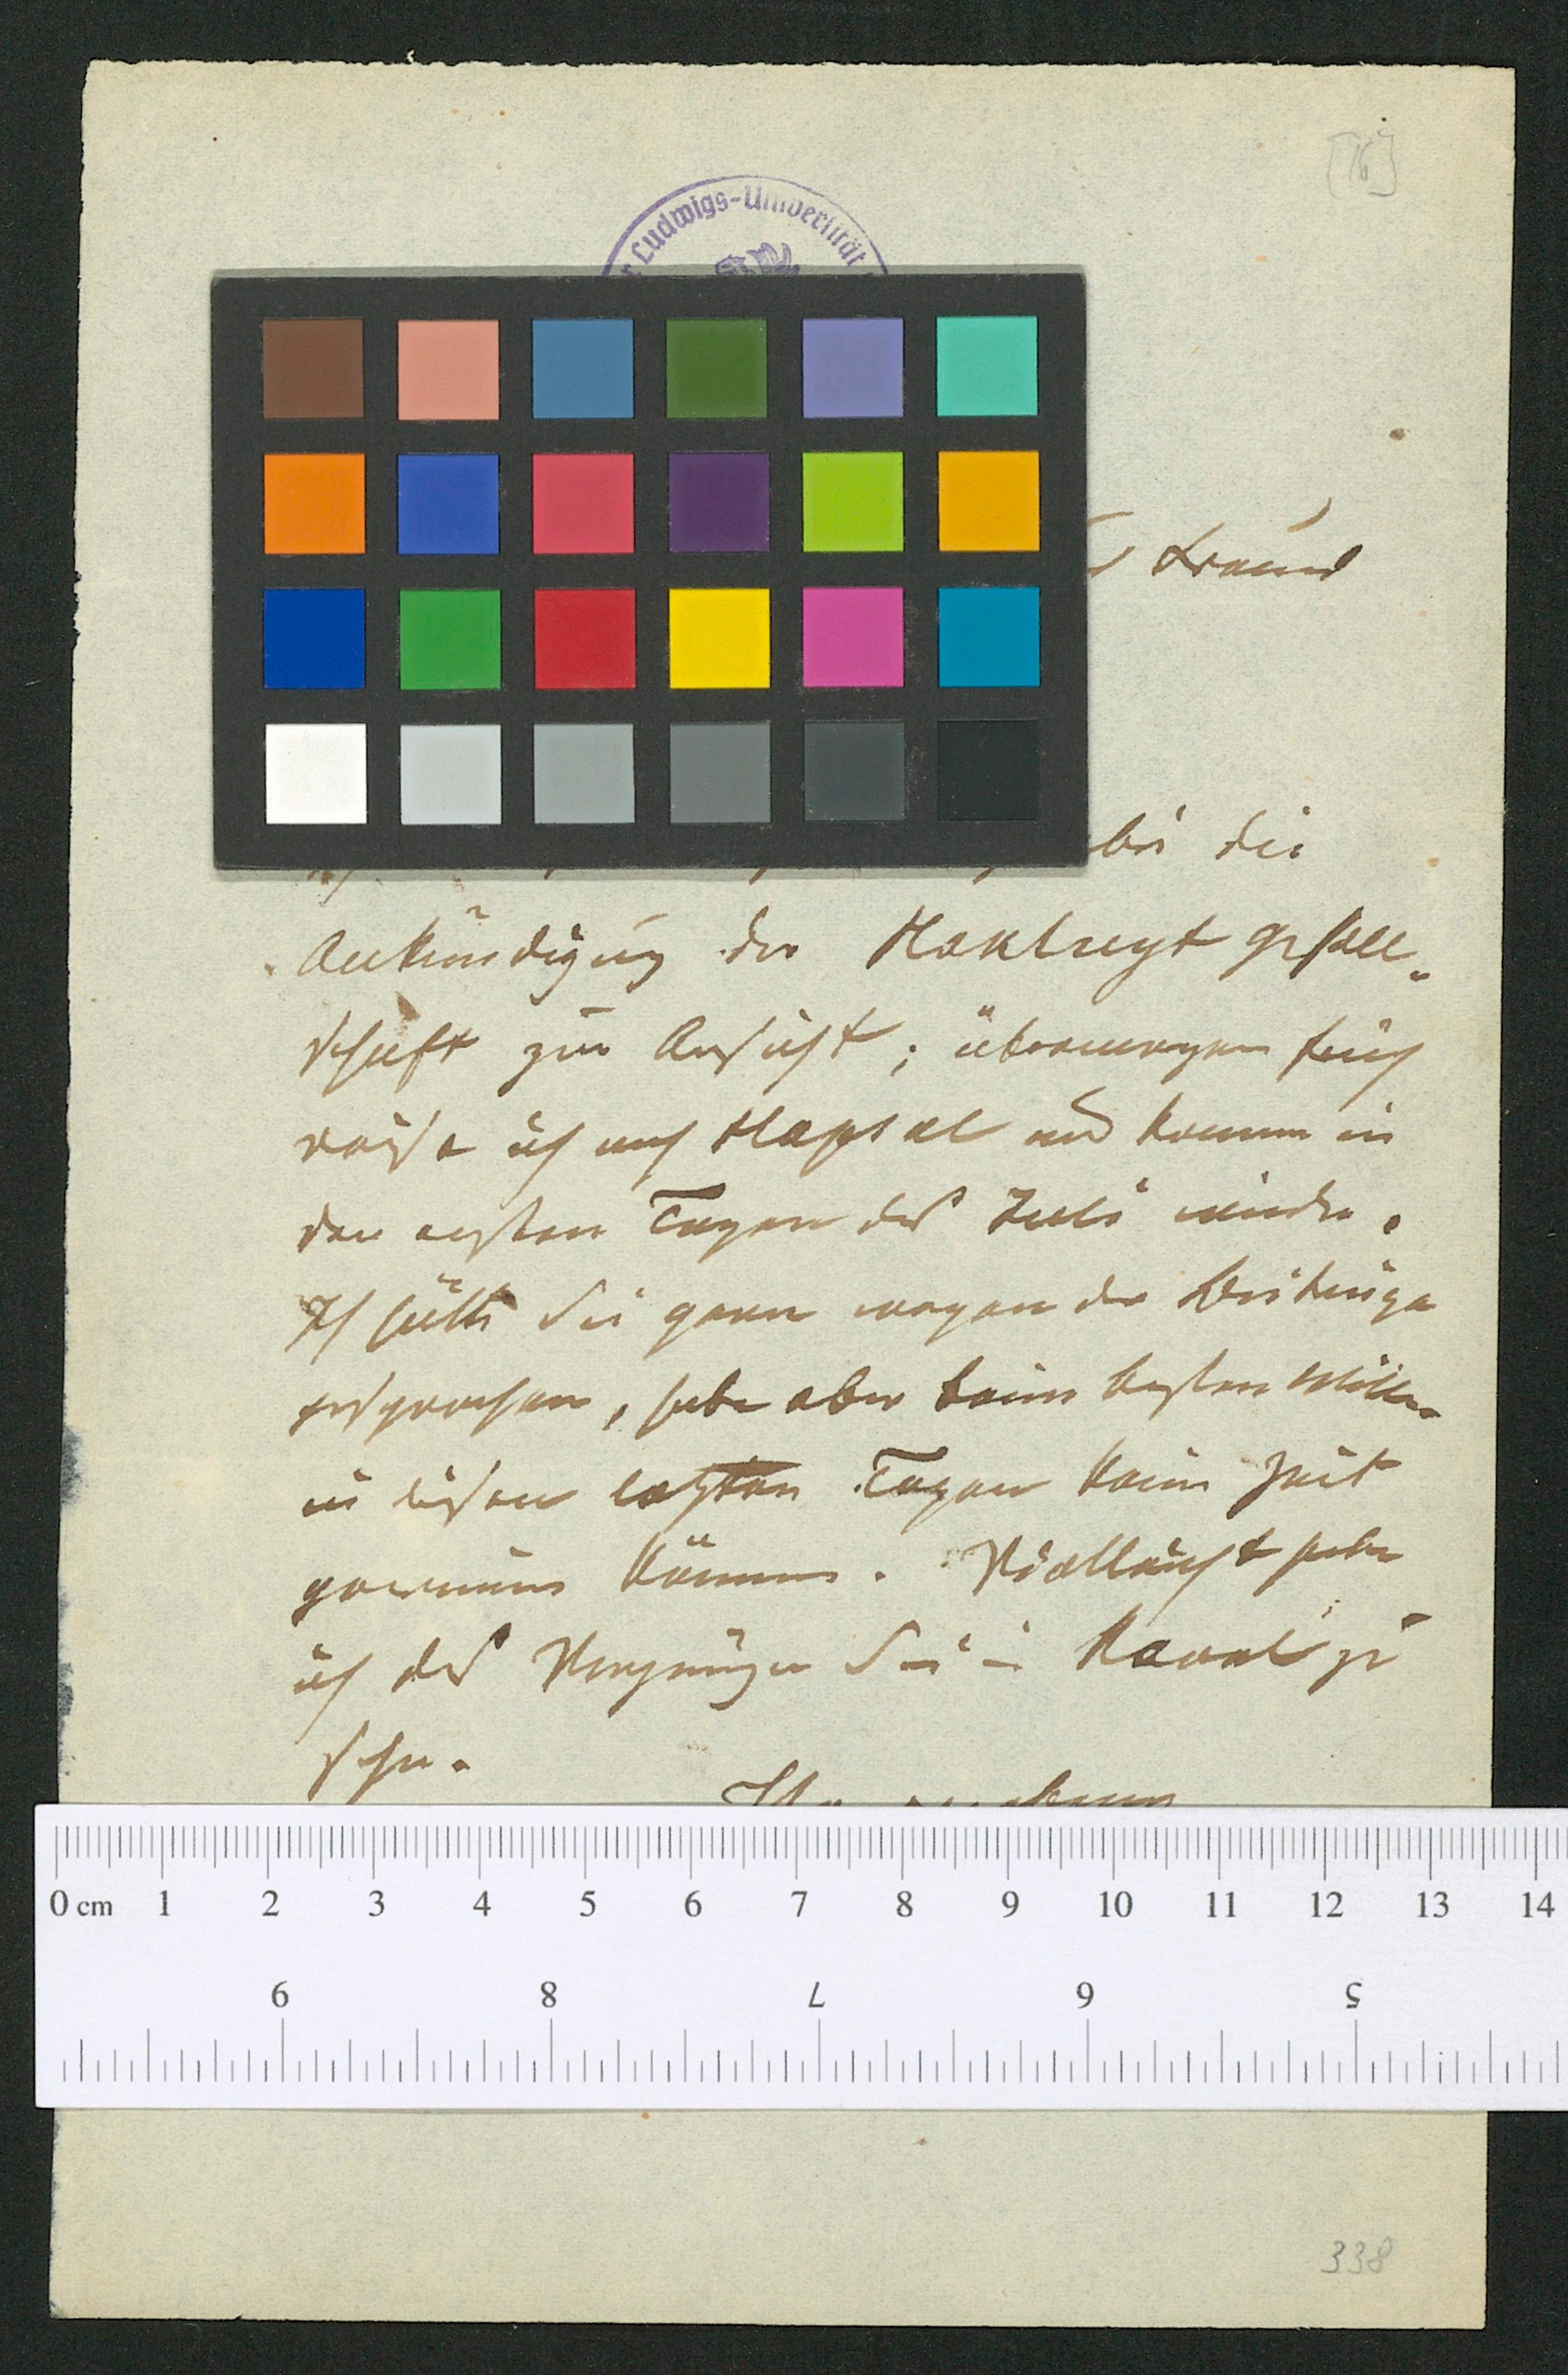 [16]
Ludwigs-Universität
Freund
bei die
Ankündigung der Hakluyt gesell-
schaft zur Ansicht; übermorgen früh
reise ich nach Hapsal und komme in
den ersten Tagen des Juli wieder.
Ich hätte Sie gern wegen der Beiträge
gesprochen, habe aber beim besten Willen
in diesen letzten Tagen keine Zeit
gewinnen können. Vielleicht habe
ich das Vergnügen Sie in Reval zu
sehn.
0 cm 1 2 3 4 5 6 7 8 9 10 11 12 13 14
9 8 7 6 5
338